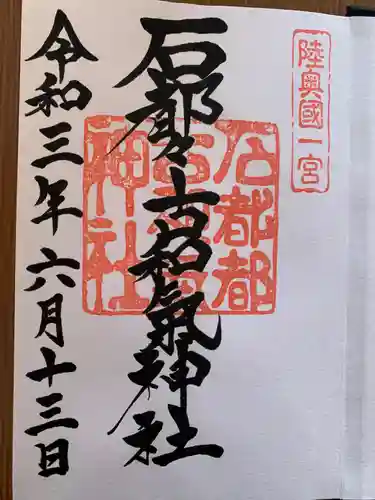 陸奥國一宮
石都々古和氣神社
石都都
古和氣
神社
令和三年六月十三日